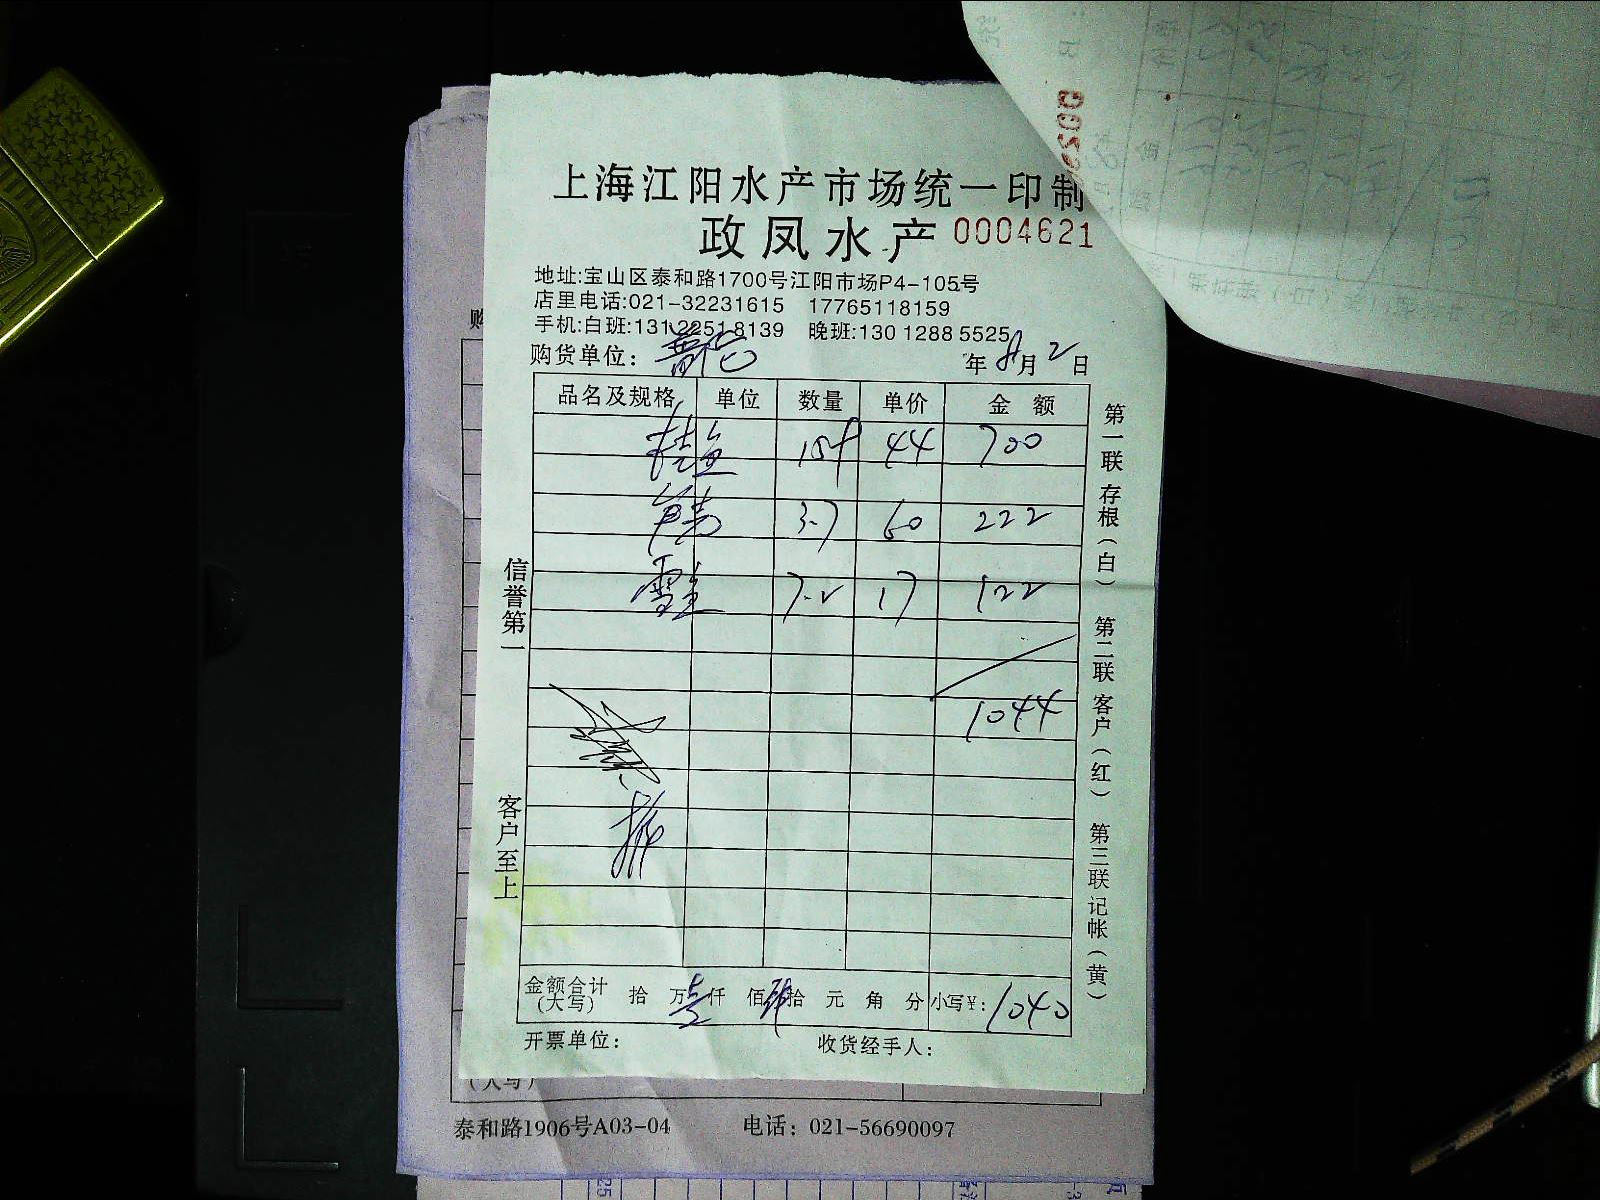 上海江阳水产市场统一印制
政凤水产 0004621
地址:宝山区泰和路1700号江阳市场P4-105号
店里电话:021-32231615 17765118159
手机:白班:131 2251 8139 晚班:130 1288 5525
购货单位:
年 8月 2日
品名及规格 单位 数量 单价 金额
桂鱼 44 700
3.7 60 222
7.2 17 122
1044
金额合计(大写) 拾 万壹仟 佰 拾 元 角 分 小写¥: 1040
开票单位: 收货经手人:
信誉第一
客户至上
第一联 存根(白) 第二联 客户(红) 第三联 记帐(黄)
(大写)
泰和路1906号A03-04 电话: 021-56690097